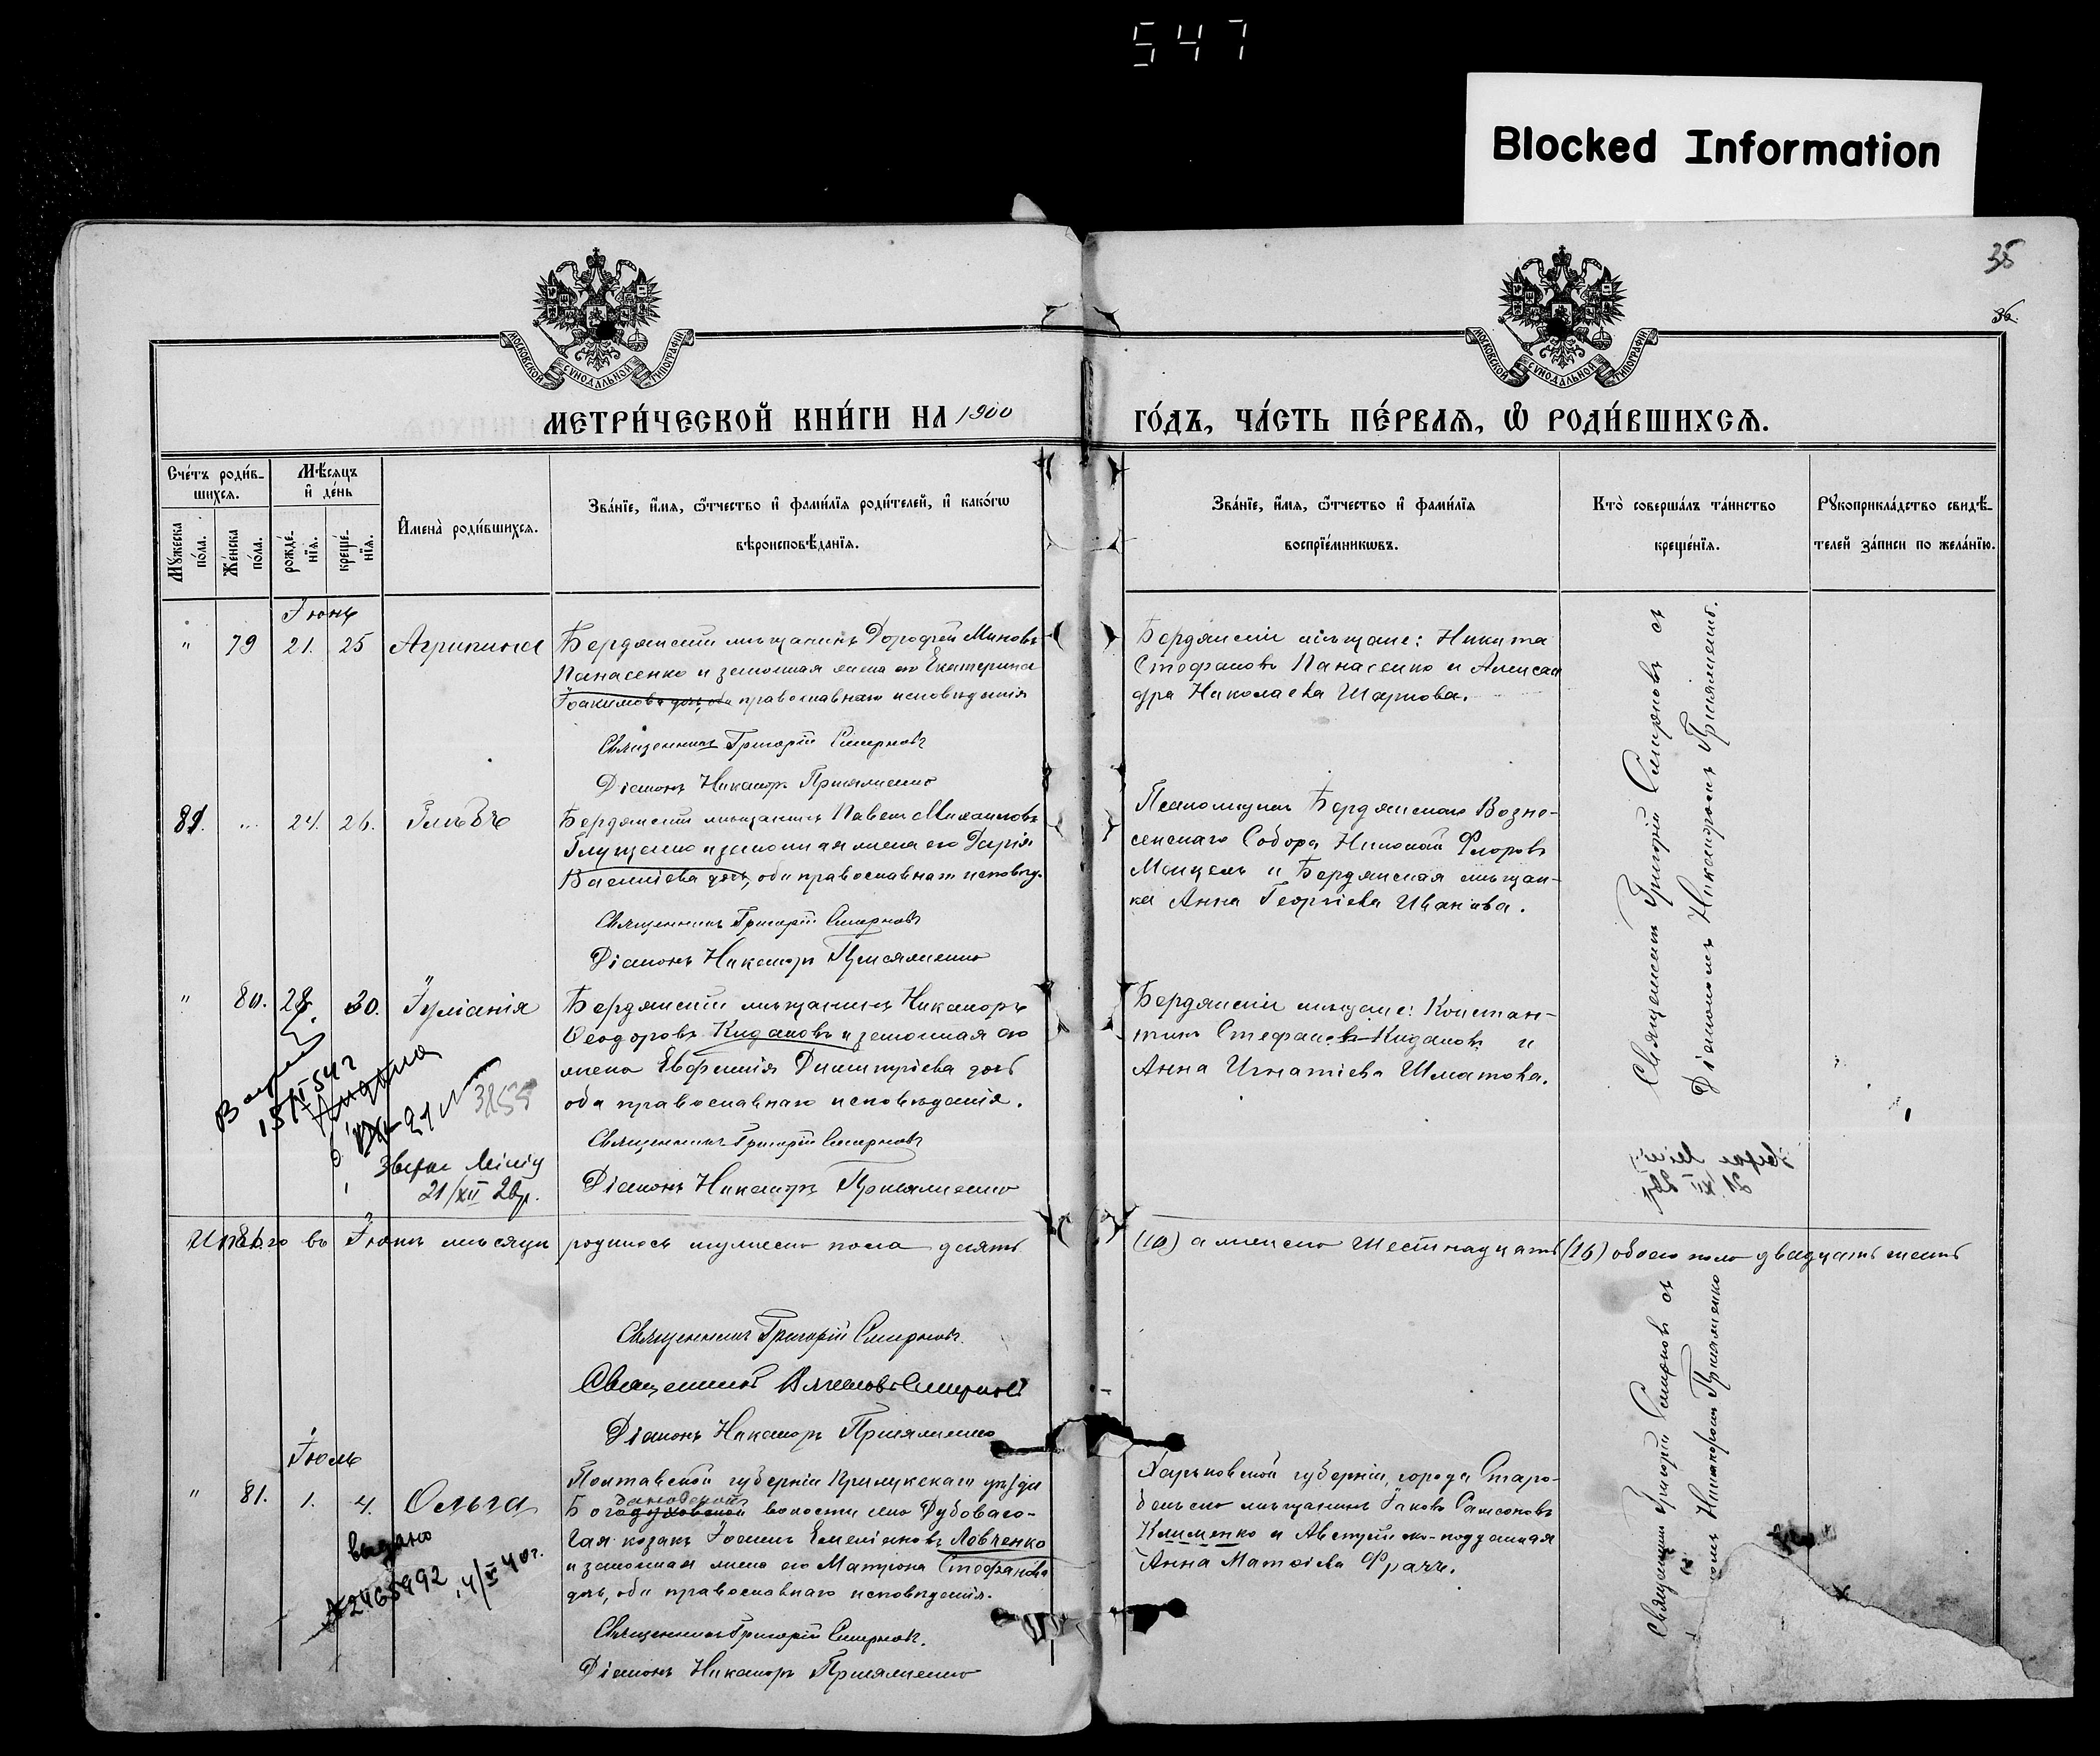 547
Blocked Information
35
36
МОСКОВСКОЙ СѴНОДАЛЬНОЙ ТИПОГРАФІИ
МОСКОВСКОЙ СѴНОДАЛЬНОЙ ТИПОГРАФІИ
МЕТРИ́ЧЕСКОЙ КНИ́ГИ НА 1900
ГО́ДЪ, ЧА́СТЬ ПЕ́РВАѦ, Ѿ РОДИ́ВШИХСѦ.
Сче́тъ роди́в-
шихся.
Мѣ́сяцъ
и҆ де́нь
Мꙋ́жеска
по́ла.
Же́нска
по́ла.
рожде́-
нїя.
креще́-
нїя.
И҆мена̀ роди́вшихся.
Зва́нїе, и҆́мя, ѻ҆́тчество и҆ фами́лїя роди́телей, и҆ како́гѡ
вѣроисповѣ́данїя.
Зва́нїе, и҆́мя, ѻ҆́тчество и҆ фами́лїя
воспрїе́мникѡвъ.
Кто̀ соверша́лъ та́инство
креще́нїя.
Рꙋкоприкла́дство свидѣ́-
телей за́писи по жела́нїю.
Іюнь
" 79 21. 25 Агрипина
Бердянскій мѣщанинъ Дорофей Миновъ
Панасенко и законная жена его Екатерина
Іоакимова дочь, оба православнаго исповѣданія
Священникъ Григорій Смирновъ
Діаконъ Никаноръ Присяженко
Бердянскіе мѣщане: Никита
Стефановъ Панасенко и Алексан
дра Николаева Шарпова.
81. " 24. 26. Глѣбъ
Бердянскій мѣщанинъ Павелъ Михаиловъ
Глущенко и законная жена его Дарія
Василіева дочь, оба православнаго исповѣд.
Священникъ Григорій Смирновъ
Діаконъ Никаноръ Присяженко
Псаломщикъ Бердянскаго Возне-
сенскаго Собора Николай Флоровъ
Монцель и Бердянская мѣщан-
ка Анна Георгіева Иванова.
" 80. 28. 30. Іуліанія
Бердянскій мѣщанинъ Никаноръ
Ѳеодоровъ Кидановъ и законная его
жена Евфимія Димитріева дочь
оба православнаго исповѣданія.
Священникъ Григорій Смирновъ
Діаконъ Никаноръ Присяженко
Бердянскіе мѣщане: Констан-
тинъ Стефановъ Кидановъ и
Анна Игнатіева Шматова.
3855
21/XII 28р.
Священникъ Григорій Смирновъ съ
Діакономъ Никаноромъ Присяженко.
Итого въ Іюнѣ мѣсяцѣ родилось мужеско пола десять
(10) а женско шестнадцать (16) обоего пола двадцать шесть
Священникъ Григорій Смирновъ.
Священникъ Смирновъ
Діаконъ Никаноръ Присяженко
Іюль
" 81. 1. 4. Ольга
Полтавской губерніи Прилукскаго уѣзда
Богодуховской волости села Дубоваго-
Гая козакъ Іоаннъ Емеліановъ Ловченко
и законная жена его Матрона Стефанова
дочь, оба православнаго исповѣданія.
Священникъ Григорій Смирновъ.
Діаконъ Никаноръ Присяженко
Харьковской губерніи, города Старо-
бельско мѣщанинъ Іаковъ Самсоновъ
Клименко и Австрійско-подданная
Анна Матѳіева Фрачъ.
выдано
2465992 14/XI 40г.
Священникъ Григорій Смирновъ съ
Никаноромъ Присяженко